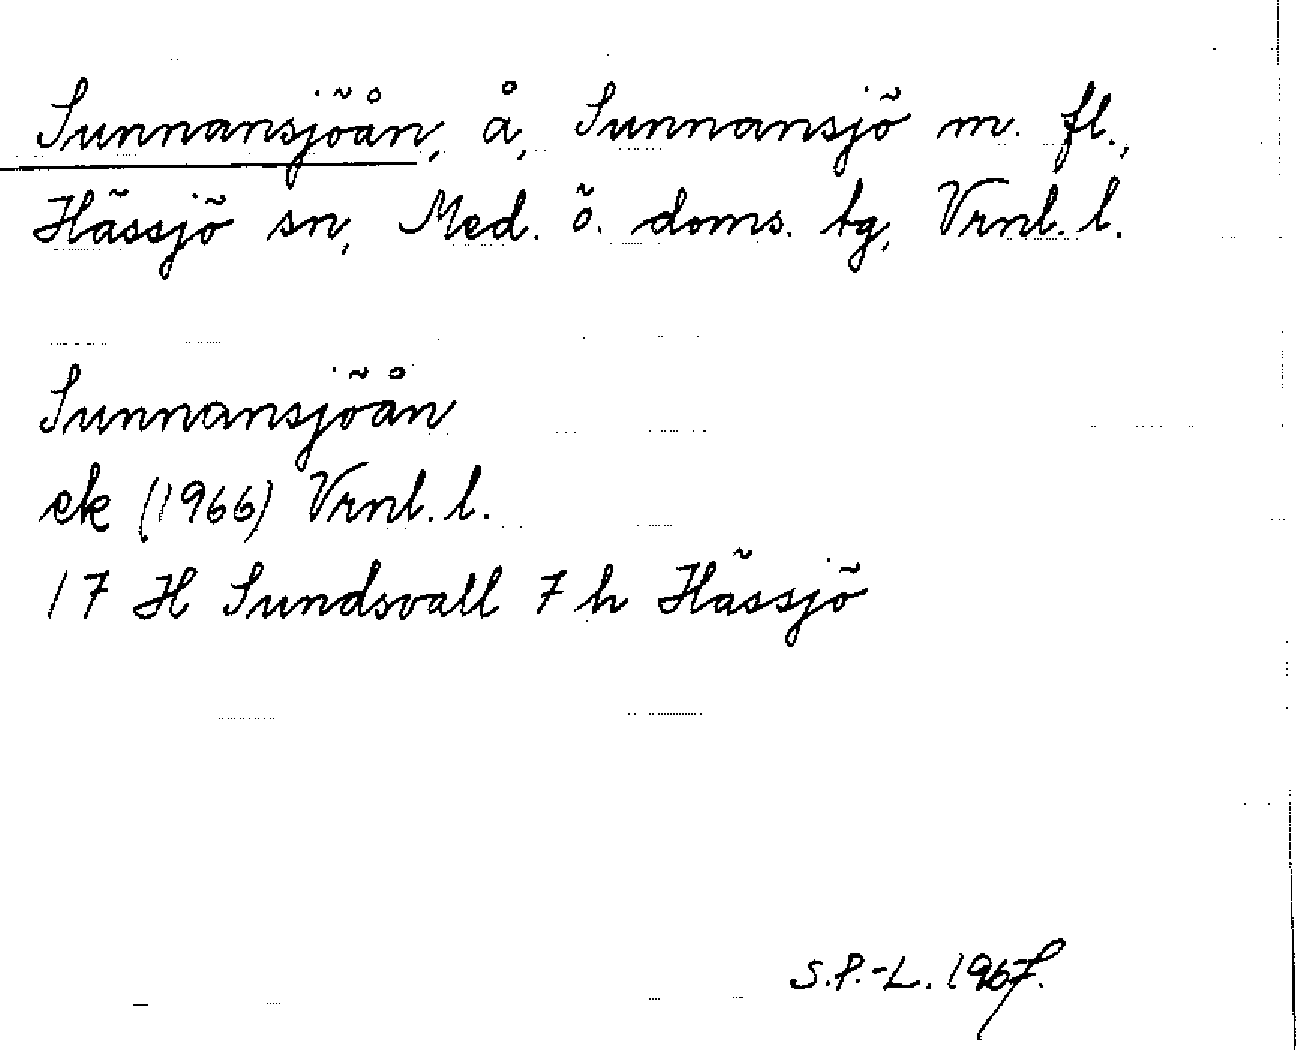 Sunnansjöån, å, Sunnansjö m. fl.,
Hässjö sn, Med. ö. doms. tg, Vrnl. l.
Sunnansjöån
ek (1966) Vrnl. l.
17 H Sundsvall 7 h Hässjö
S.P.-L. 1967.